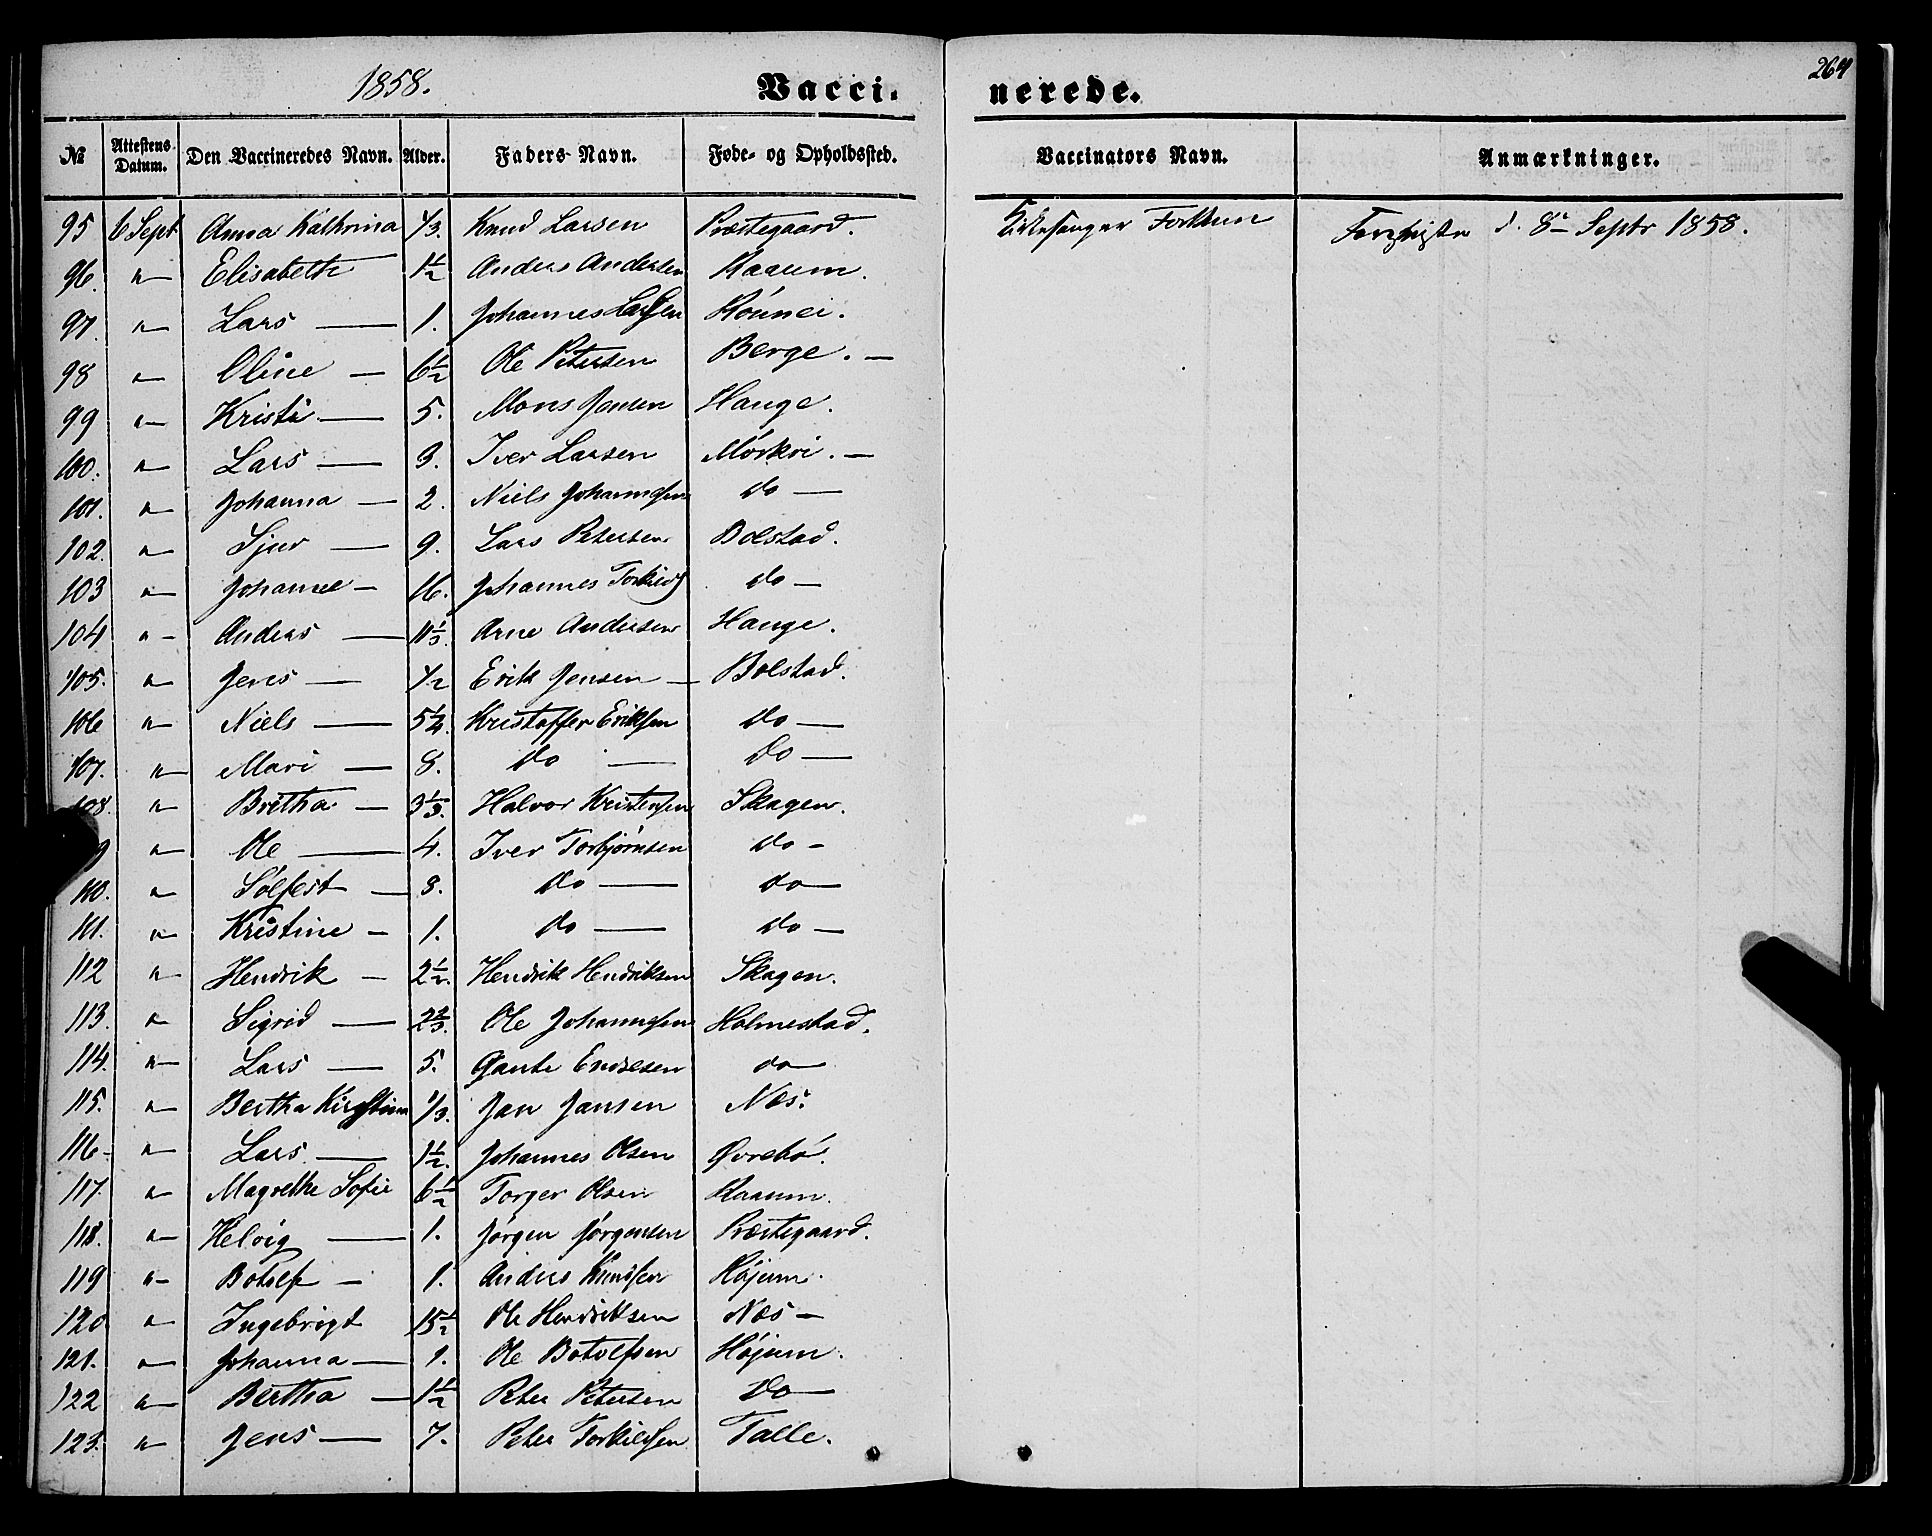 1858. Vacci- nerede. 264
№ Attestens Datum. Den Vaccineredes Navn. Alder. Faders Navn. Føde- og Opholdssted. Vaccinators Navn. Anmærkninger.
95 6 Sept Anna Kathrina 1/3. Knud Larsen Præstegaard. Kirkesanger Forthun d. 8de Septr 1858.
96. " Elisabeth 1 1/2 Anders Andersen Kaaum.
97. " Lars — 1. Johannes Larssen
98 " Oline — 6 1/2 Ole Petersen Berge. —
99 " Kristi — 5. Mons Jensen Hauge.
100. " Lars — 3. Iver Larsen Mórkri. —
101. " Johanna — 2. Niels Johannssen do —
102. " Sjur — 9. Lars Petersen Bolstad.
103 " Johanne — 16. Johannes do —
104 " Anders — 11 1/3. Arne Andersen Hauge.
105. " Jens — 1/2 Erik Jensen — Bolstad.
106 " Niels — 5 1/4. Kristoffer Eriksen do —
107. " Mari — 8. do — do —
108. " Britha — 3 1/3. Halvor Kristensen Skagen.
9 " Ole — 4. Iver Torbjørnsen do -
110. " Sólfest — 3. do — do —
111. " Kristine — 1. do — do —
112 " Hendrik — 2 1/2. Hendrik Hendriksen Skagen.
113. " Sigrid — 2 2/3. Ole Johannssen Holmestad.
114. " Lars — 5. Gaute Endresen do —
115. " Bertha Kirstina 1/3. Jan Jansen Næs.
116. " Lars — 1 1/2. Johannes Olsen Øvrebó.
117. " Magrethe Sofie 6 1/2 Torger Olsen Kaaum.
118. " Helvig — 1. Jórgen Jórgensen Præstegaard.
119 " Botolf — 1. Anders Knudsen Hójum.
120 " Ingebrigt 15 1/2 Ole Hendriksen Næs —
121. " Johanna — 1. Ole Botolfsen Hójum.
122 " Bertha — 1 1/2 Peter Petersen do —
123. " Jens — 7. Peter Torkilssen Talle.